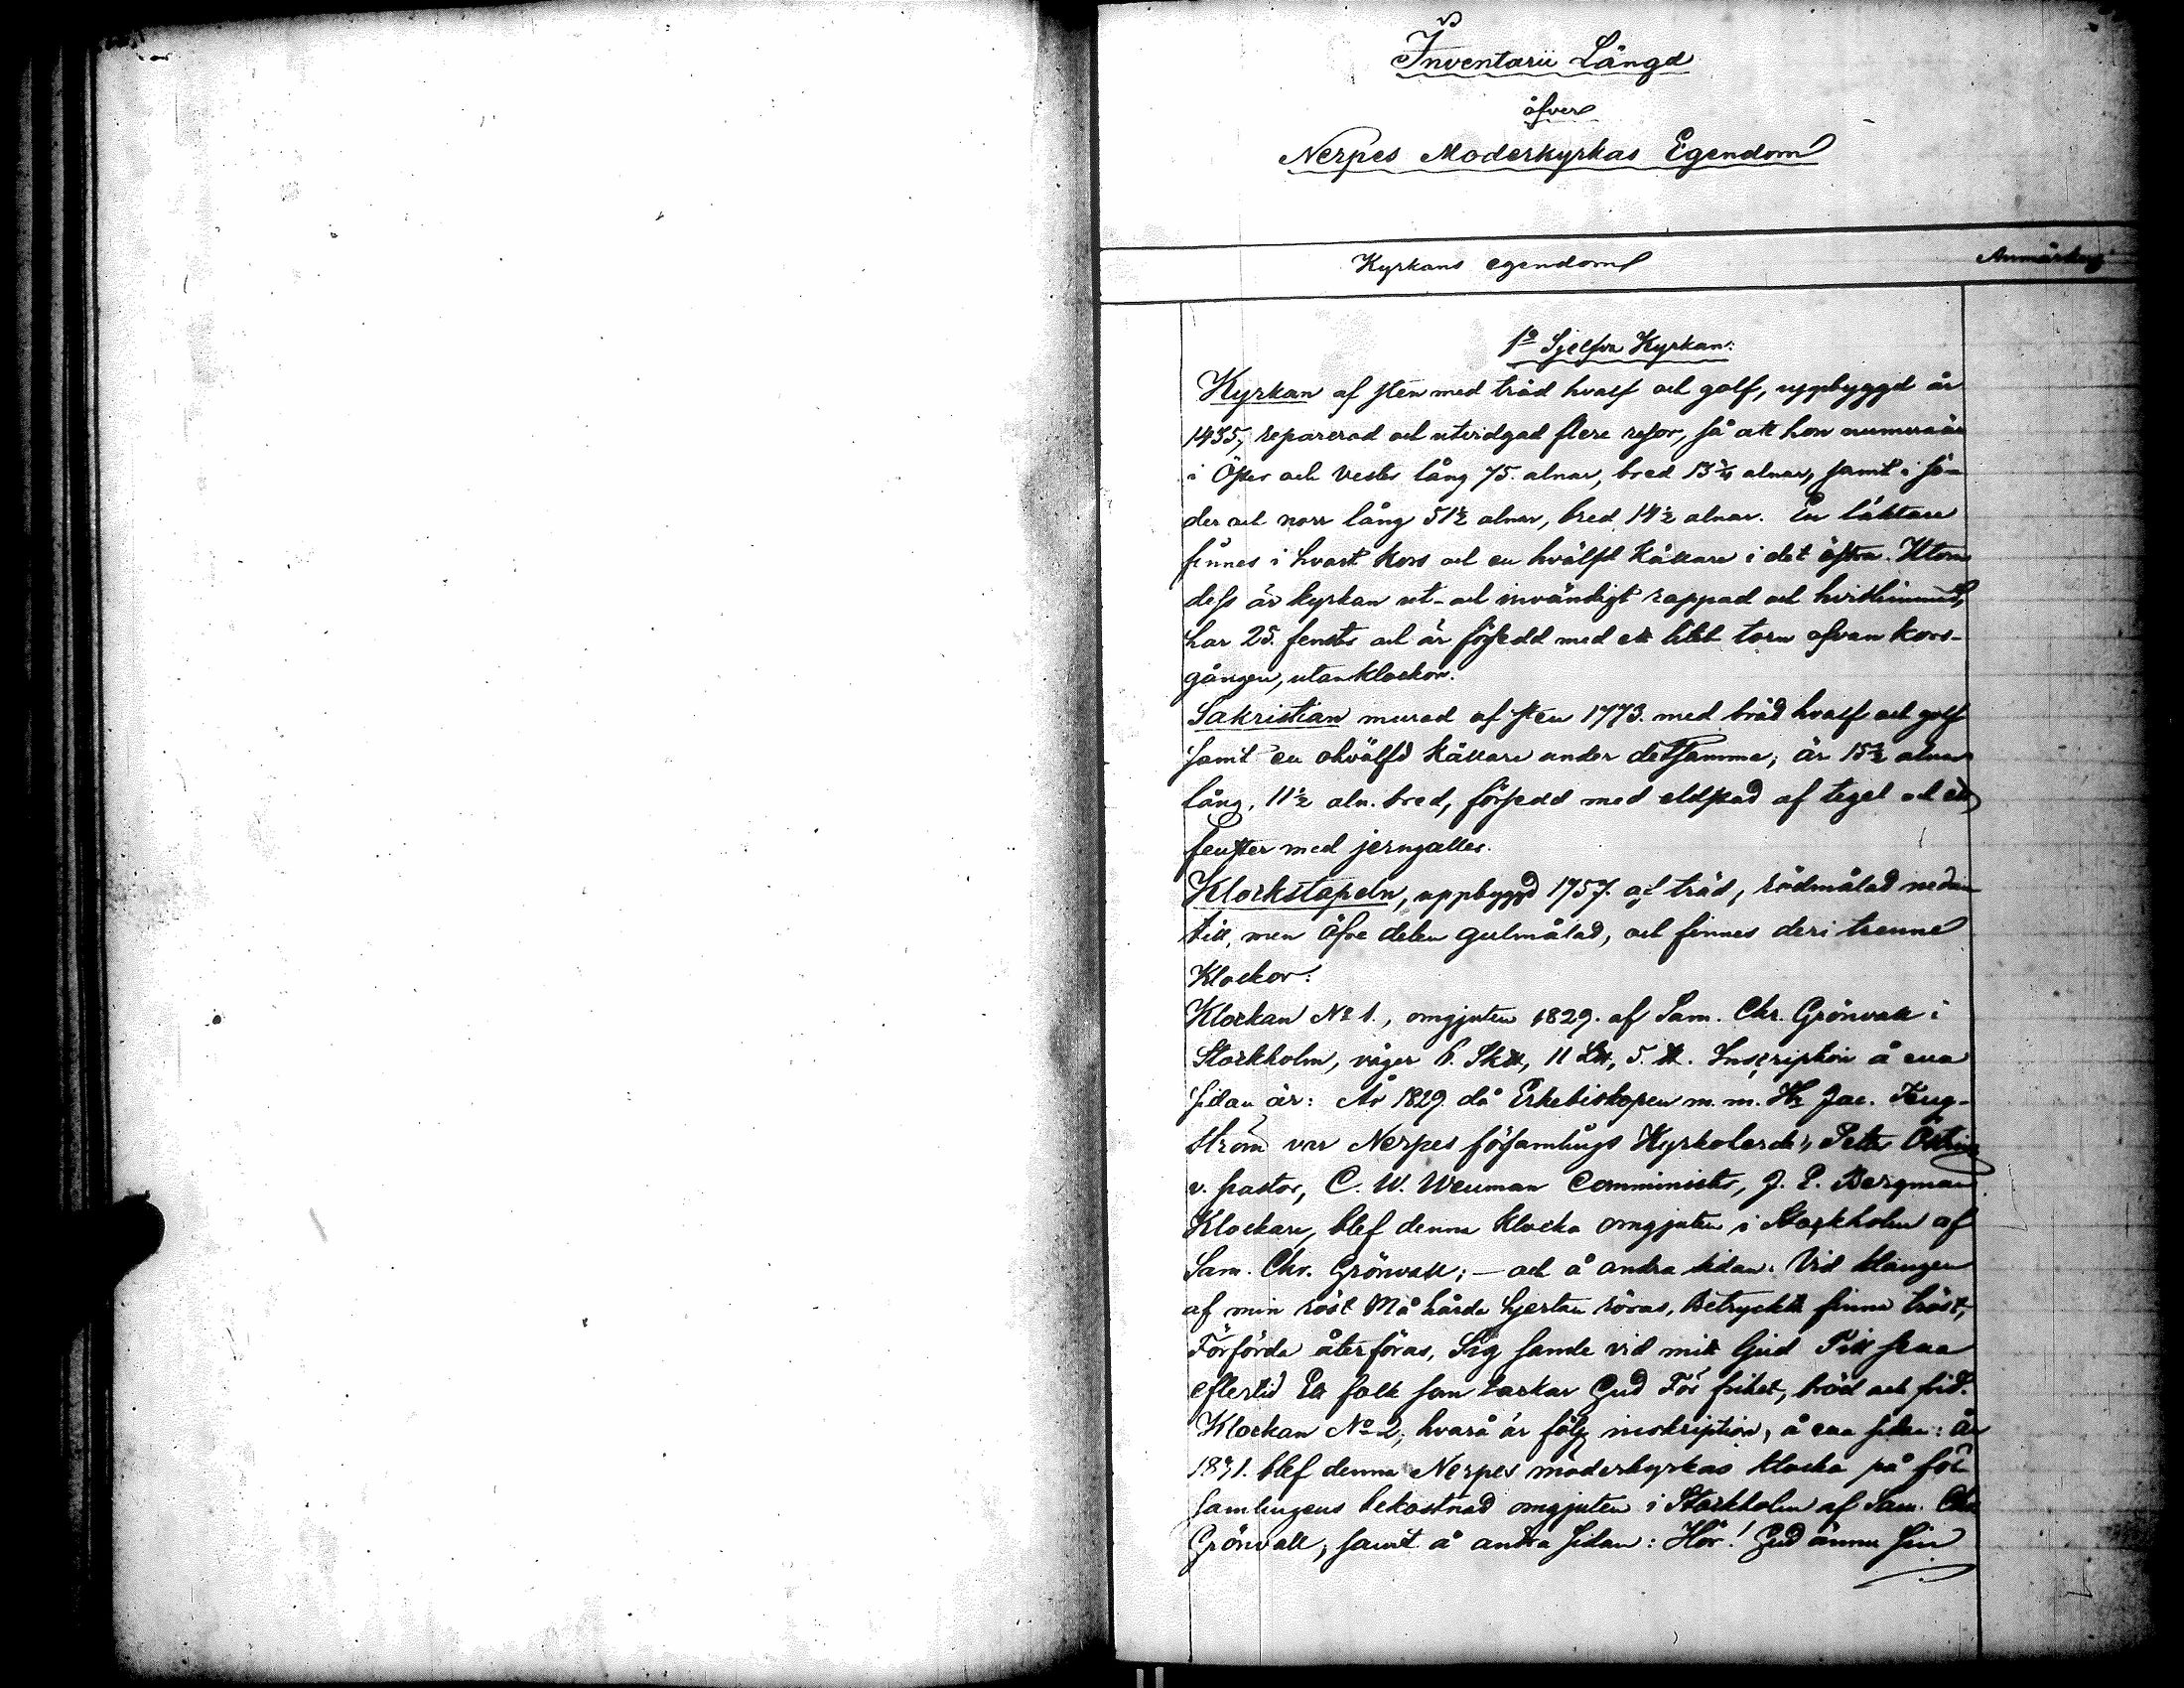 Inventarii Längd
öfver
Nerpes Moderkyrkas Egendom
Kyrkans egendom
Anmärkng
1º Sjelfva Kyrkan:
Kyrkan af sten med träd hvalf och golf, uppbyggd år
1435, reparerad och utvidgad flere resor, så att hon numera är
i Öster och Vester lång 75. alnar, bred 13¼ alnar, samt i sö-
der och norr lång 51½ alnar, bred 14½ alnar. En läktare
finnes i hvart kors och en hvälfd källare i det östra. Utom
dess är kyrkan ut- och invändigt rappad och hvitlimmad,
har 25. fenster och är försedd med ett litet torn ofvan kors-
gången, utan klockor.
Sakristian murad af sten 1773. med bräd hvalf och golf
samt en ohvälfd källare under detsamma; är 15½ alnar
lång, 11½ aln. bred, försedd med eldstad af tegel och ett
fenster med jerngaller.
Klockstapeln, uppbyggd 1757. af träd, rödmålad nedan
till, men öfre delen gulmålad, och finnes deri trenne
Klockor:
Klockan Nº 1., omgjuten 1829. af Sam. Chr. Grönvall i
Stockholm, väger 6. Sk℔, 11 L℔, 5. ℔. Inscription å ena
sidan är: År 1829. då Erkebiskopen m. m. Hr Jac. Teng-
ström var Nerpes församlings Kyrkoherde, Petter Östring
v. pastor, C. W. Wenman Comminister, J. E. Bergman
Klockare, blef denna klocka omgjuten i Stockholm af
Sam. Chr. Grönvall; — och å andra sidan: Vid klangen
af min röst Må hårda hjertan röras, Betryckta finna tröst,
Förförda återföras, Sig samle vid mitt ljud Till sena
eftertid Ett folk som tackar Gud För frihet, bröd och frid.
Klockan Nº 2, hvarå är följ inskription, å ena sidan: År
1831. blef denna Nerpes moderkyrkas klocka på för-
samlingens bekostnad omgjuten i Stockholm af Sam. Chr
Grönvall, samt å andra sidan: Hör! Gud ännu sin